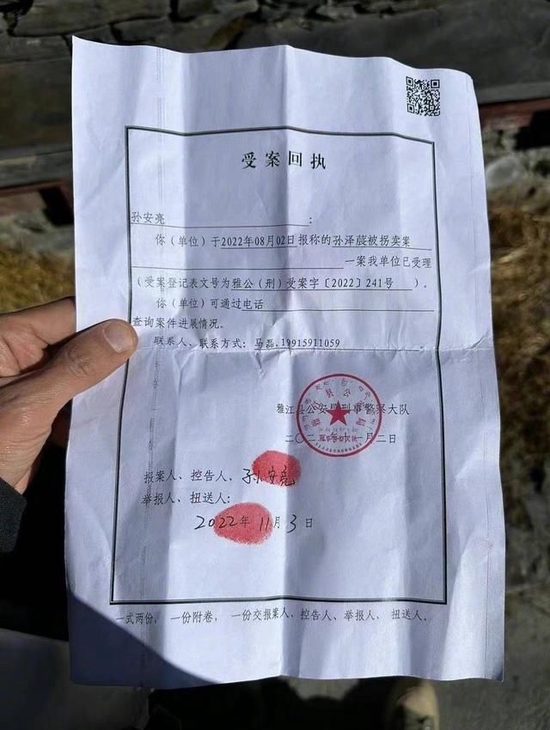 受案回执
孙安亮：
你（单位）于2022年08月02日报称的孙泽蕤被拐卖案
一案我单位已受理
（受案登记表文号为雅公（刑）受案字〔2022〕241号）。
你（单位）可通过电话
查询案件进展情况。
联系人、联系方式：马磊,19915911059
雅江县公安局刑事警察大队
二〇二二年十一月二日
报案人、控告人、孙安亮
举报人、扭送人：
2022年11月3日
一式两份，一份附卷，一份交报案人、控告人、举报人、扭送人。